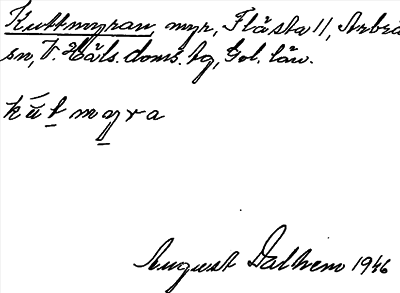 Kuttmyran, myr, Flästa 11, Arbrå
sn, V. Häls. doms. tg, Gvl. län.
kūt myra
August Dalhem 1946